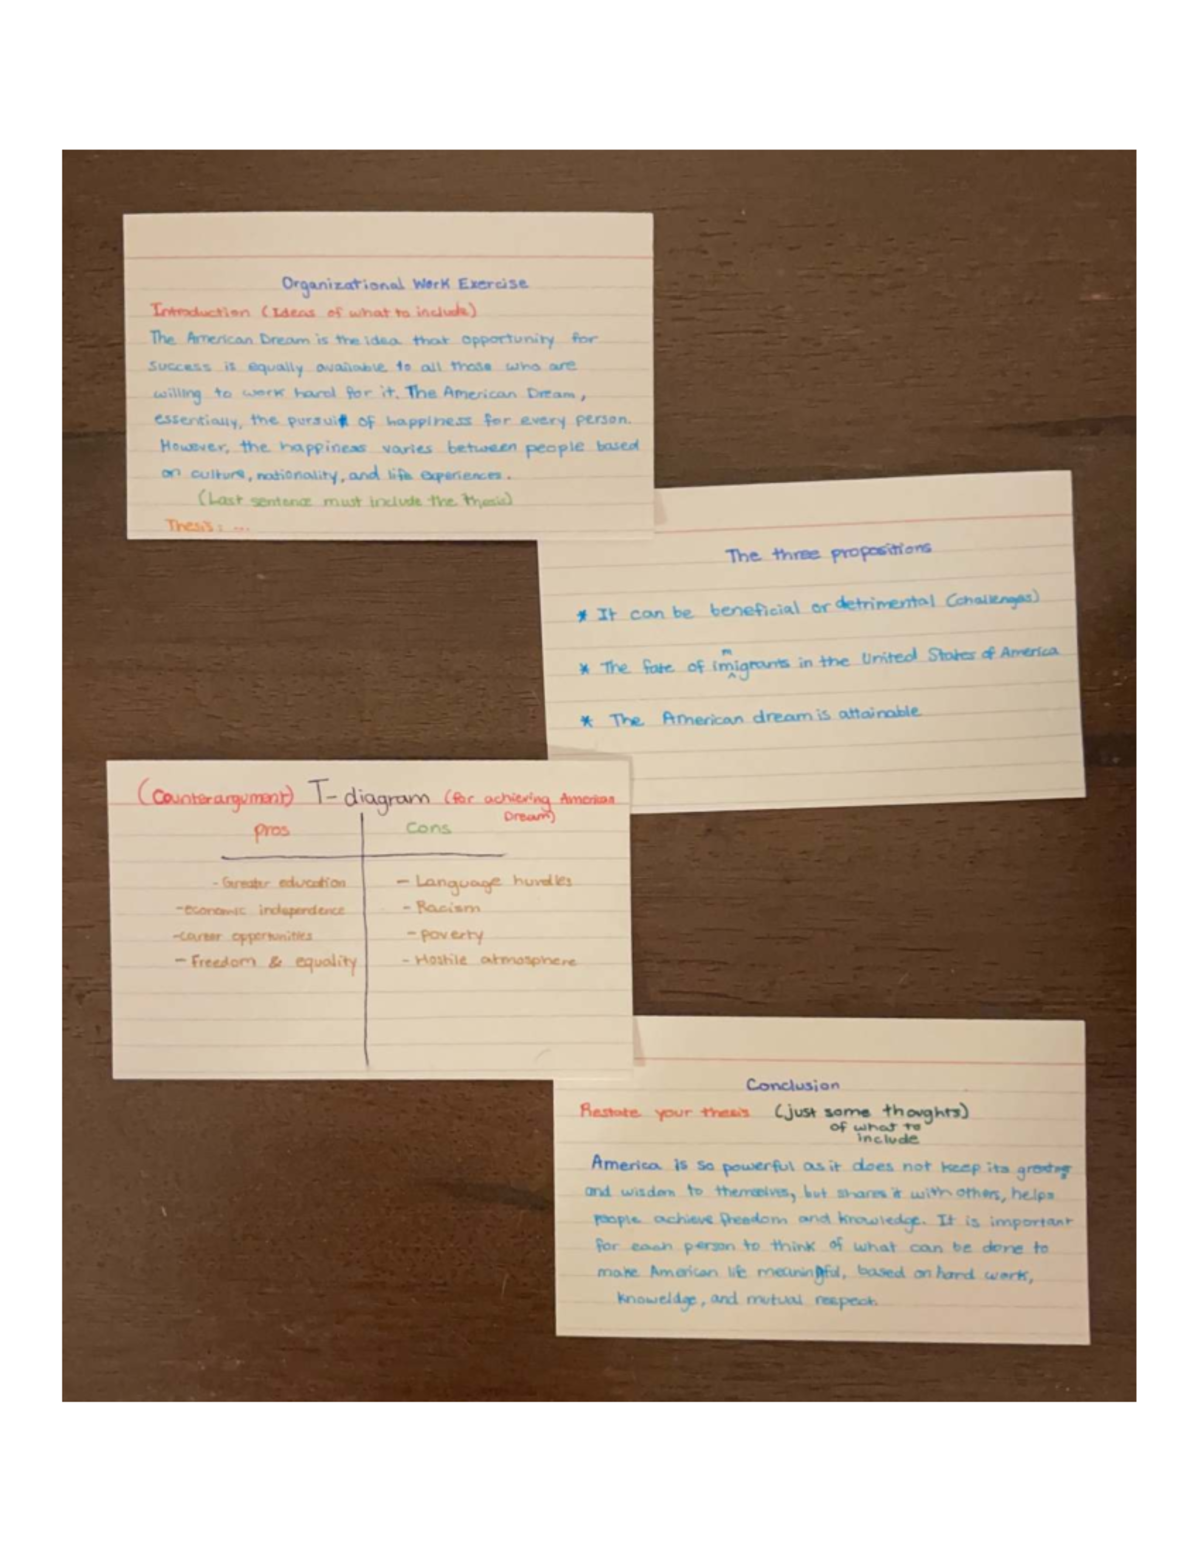 Organizational Work Exercise
Introduction (Ideas of what to include)
The American Dream is the idea that opportunity for
success is equally available to all those who are
willing to work hard for it. The American Dream,
essentially, the pursuit of happiness for every person.
However, the happiness varies between people based
on culture, nationality, and life experiences.
(Last sentence must include the thesis)
Thesis: ...
The three propositions
* It can be beneficial or detrimental (challenges)
* The fate of immigrants in the United States of America
* The American dream is attainable
(Counterargument) T-diagram (for achieving American
Dream)
pros
Cons
- Greater education
- economic independence
- career opportunities
- Freedom & equality
- Language hurdles
- Racism
- poverty
- Hostile atmosphere
Conclusion
Restate your thesis (just some thoughts)
of what to
include
America is so powerful as it does not keep its
and wisdom to themselves, but shares it with others, helps
people achieve freedom and knowledge. It is important
for each person to think of what can be done to
make American life meaningful, based on hard work,
knoweldge, and mutual respect.